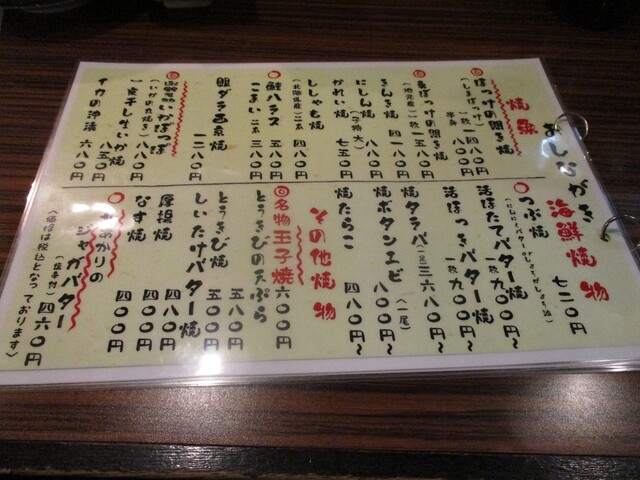 おしながき
焼魚
ほっけの開き焼
(しまほっけ)一枚 一四八〇円
半身 八〇円
真ほっけの開き焼
(地元産)一枚 八五〇円
きんき焼 四一八〇円
にしん焼 一八〇円
かれい焼(子持大) 七五〇円
ししゃも焼
(北海道産)二本 四八〇円
鮭ハラス 五八〇円
こまい 二本 三八〇円
銀ダラ西京焼 一二八〇円
いかぽっぽ
(いかの丸焼き) 一八八〇円
一夜干しするめいか焼 八五〇円
イカの沖漬 六八〇円
海鮮焼物
つぶ焼 七二〇円
活ほたてバター焼 一枚 九〇〇円~
活ほっきバター焼 一枚 九〇〇円~
焼タラバ(一足) 三六八〇円~
焼ボタンエビ(一尾) 八〇〇円~
焼たらこ 四八〇円~
その他焼物
名物玉子焼 六〇〇円
とうきびの天ぷら 五八〇円
とうきび焼 五〇〇円
しいたけバター焼 四八〇円
厚揚焼 四八〇円
なす焼 四〇〇円
きたあかりのジャガバター
(塩辛付) 四六〇円
〈価格は税込となっております〉